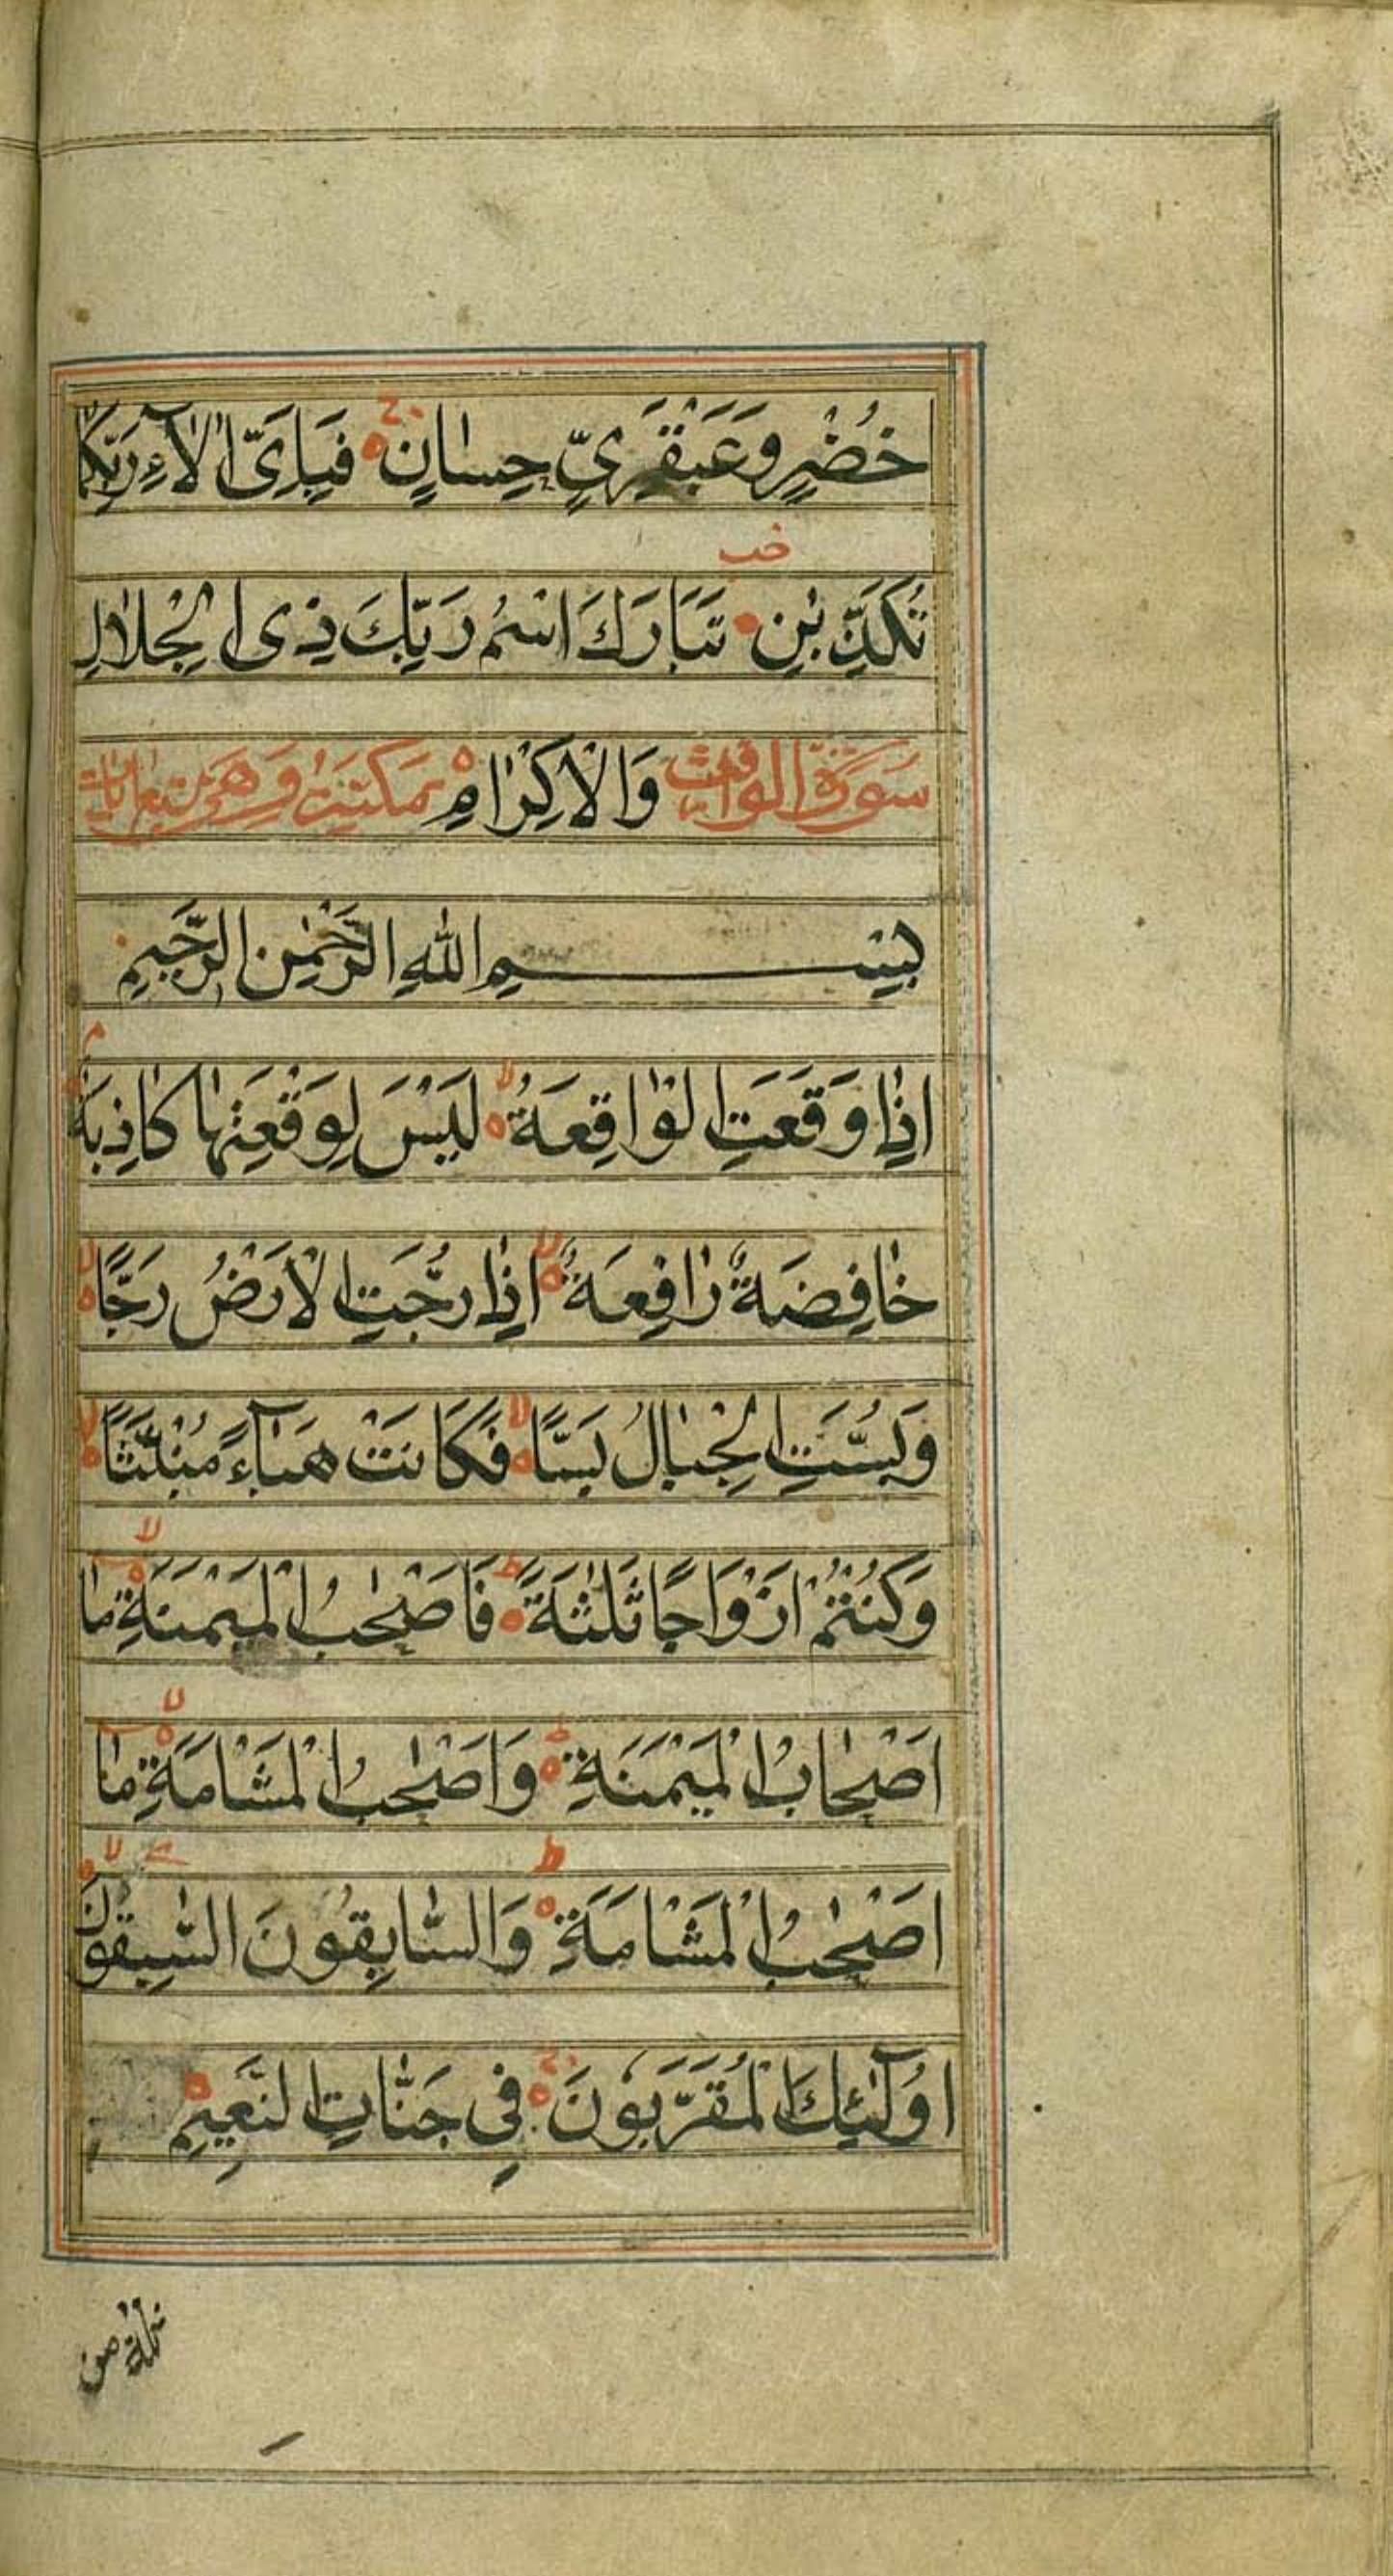 خُضْرٍ وَعَبْقَرِيٍّ حِسَانٍ فَبِاَيِّ اٰلَاۤءِ رَبِّكُمَا
تُكَذِّبٰنِ تَبَارَكَ اسْمُ رَبِّكَ ذِى الْجَلَالِ
خب
سورة الواقعة وَالْاِكْرَامِ مكية وهى
بِسْمِ اللّٰهِ الرَّحْمٰنِ الرَّحِيمِ
اِذَا وَقَعَتِ الْوَاقِعَةُ لَيْسَ لِوَقْعَتِهَا كَاذِبَةٌ
خَافِضَةٌ رَافِعَةٌ اِذَا رُجَّتِ الْاَرْضُ رَجًّا
وَبُسَّتِ الْجِبَالُ بَسًّا فَكَانَتْ هَبَاۤءً مُنْبَثًّا
وَكُنْتُمْ اَزْوَاجًا ثَلٰثَةً فَاَصْحٰبُ الْمَيْمَنَةِ مَا
اَصْحَابُ الْمَيْمَنَةِ وَاَصْحٰبُ الْمَشْاَمَةِ مَا
اَصْحٰبُ الْمَشْاَمَةِ وَالسَّابِقُونَ السّٰبِقُونَ
اُولٰۤئِكَ الْمُقَرَّبُونَ فِي جَنَّاتِ النَّعِيمِ
ثلة من